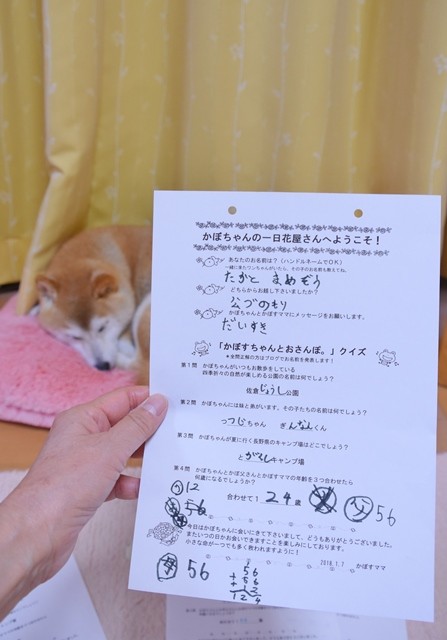 かぼちゃんの一日花屋さんへようこそ!
あなたのお名前は?(ハンドルネームでOK)
一緒に来たワンちゃんがいたら、その子のお名前も教えてね。
たかと まめぞう
どちらからお越し下さいましたか?
公づのもり
かぼちゃんとかぼすママにメッセージをお願いします。
だいすき
「かぼすちゃんとおさんぽ。」クイズ
*全問正解の方はブログでお名前を発表します!
第1問 かぼちゃんがいつもお散歩をしている
四季折々の自然が楽しめる公園の名前は何でしょう?
佐倉じょうし公園
第2問 かぼちゃんには妹と弟がいます。その子たちの名前は何でしょう?
つつじちゃん ぎんなんくん
第3問 かぼちゃんが夏に行く長野県のキャンプ場はどこでしょう?
とがくしキャンプ場
第4問 かぼちゃんとかぼ父さんとかぼすママの年齢を3つ合わせたら
何歳になるでしょうか?
12
56
合わせて!124歳 父 56
今日はかぼちゃんに会いにきて下さいまして、どうもありがとうございました。
またいつの日かお会いできますことを楽しみにしております。
小さな命が一つでも多く救われますように!
2018.1.7 かぼすママ
母 56
56
+56
12
124